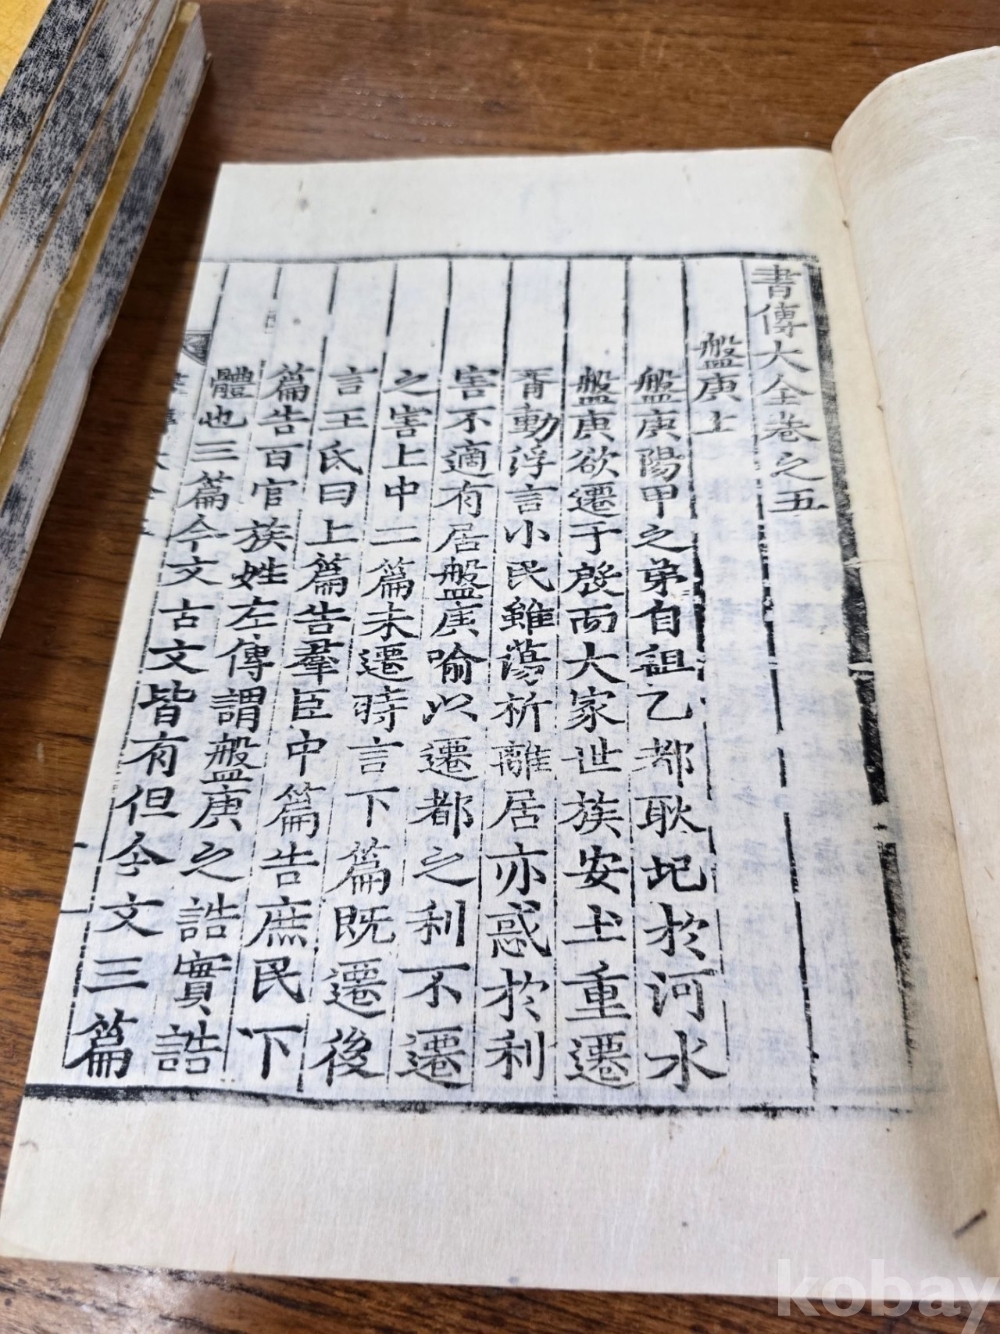 書傳大全卷之五
盤庚上
盤庚陽甲之弟自祖乙都耿圮於河水
盤庚欲遷于殷而大家世族安土重遷
胥動浮言小民雖蕩析離居亦惑於利
害不適有居盤庚喻以遷都之利不遷
之害上中二篇未遷時言下篇既遷後
言王氏曰上篇告羣臣中篇告庶民下
篇告百官族姓左傳謂盤庚之誥實誥
體也三篇今文古文皆有但今文三篇
kobay